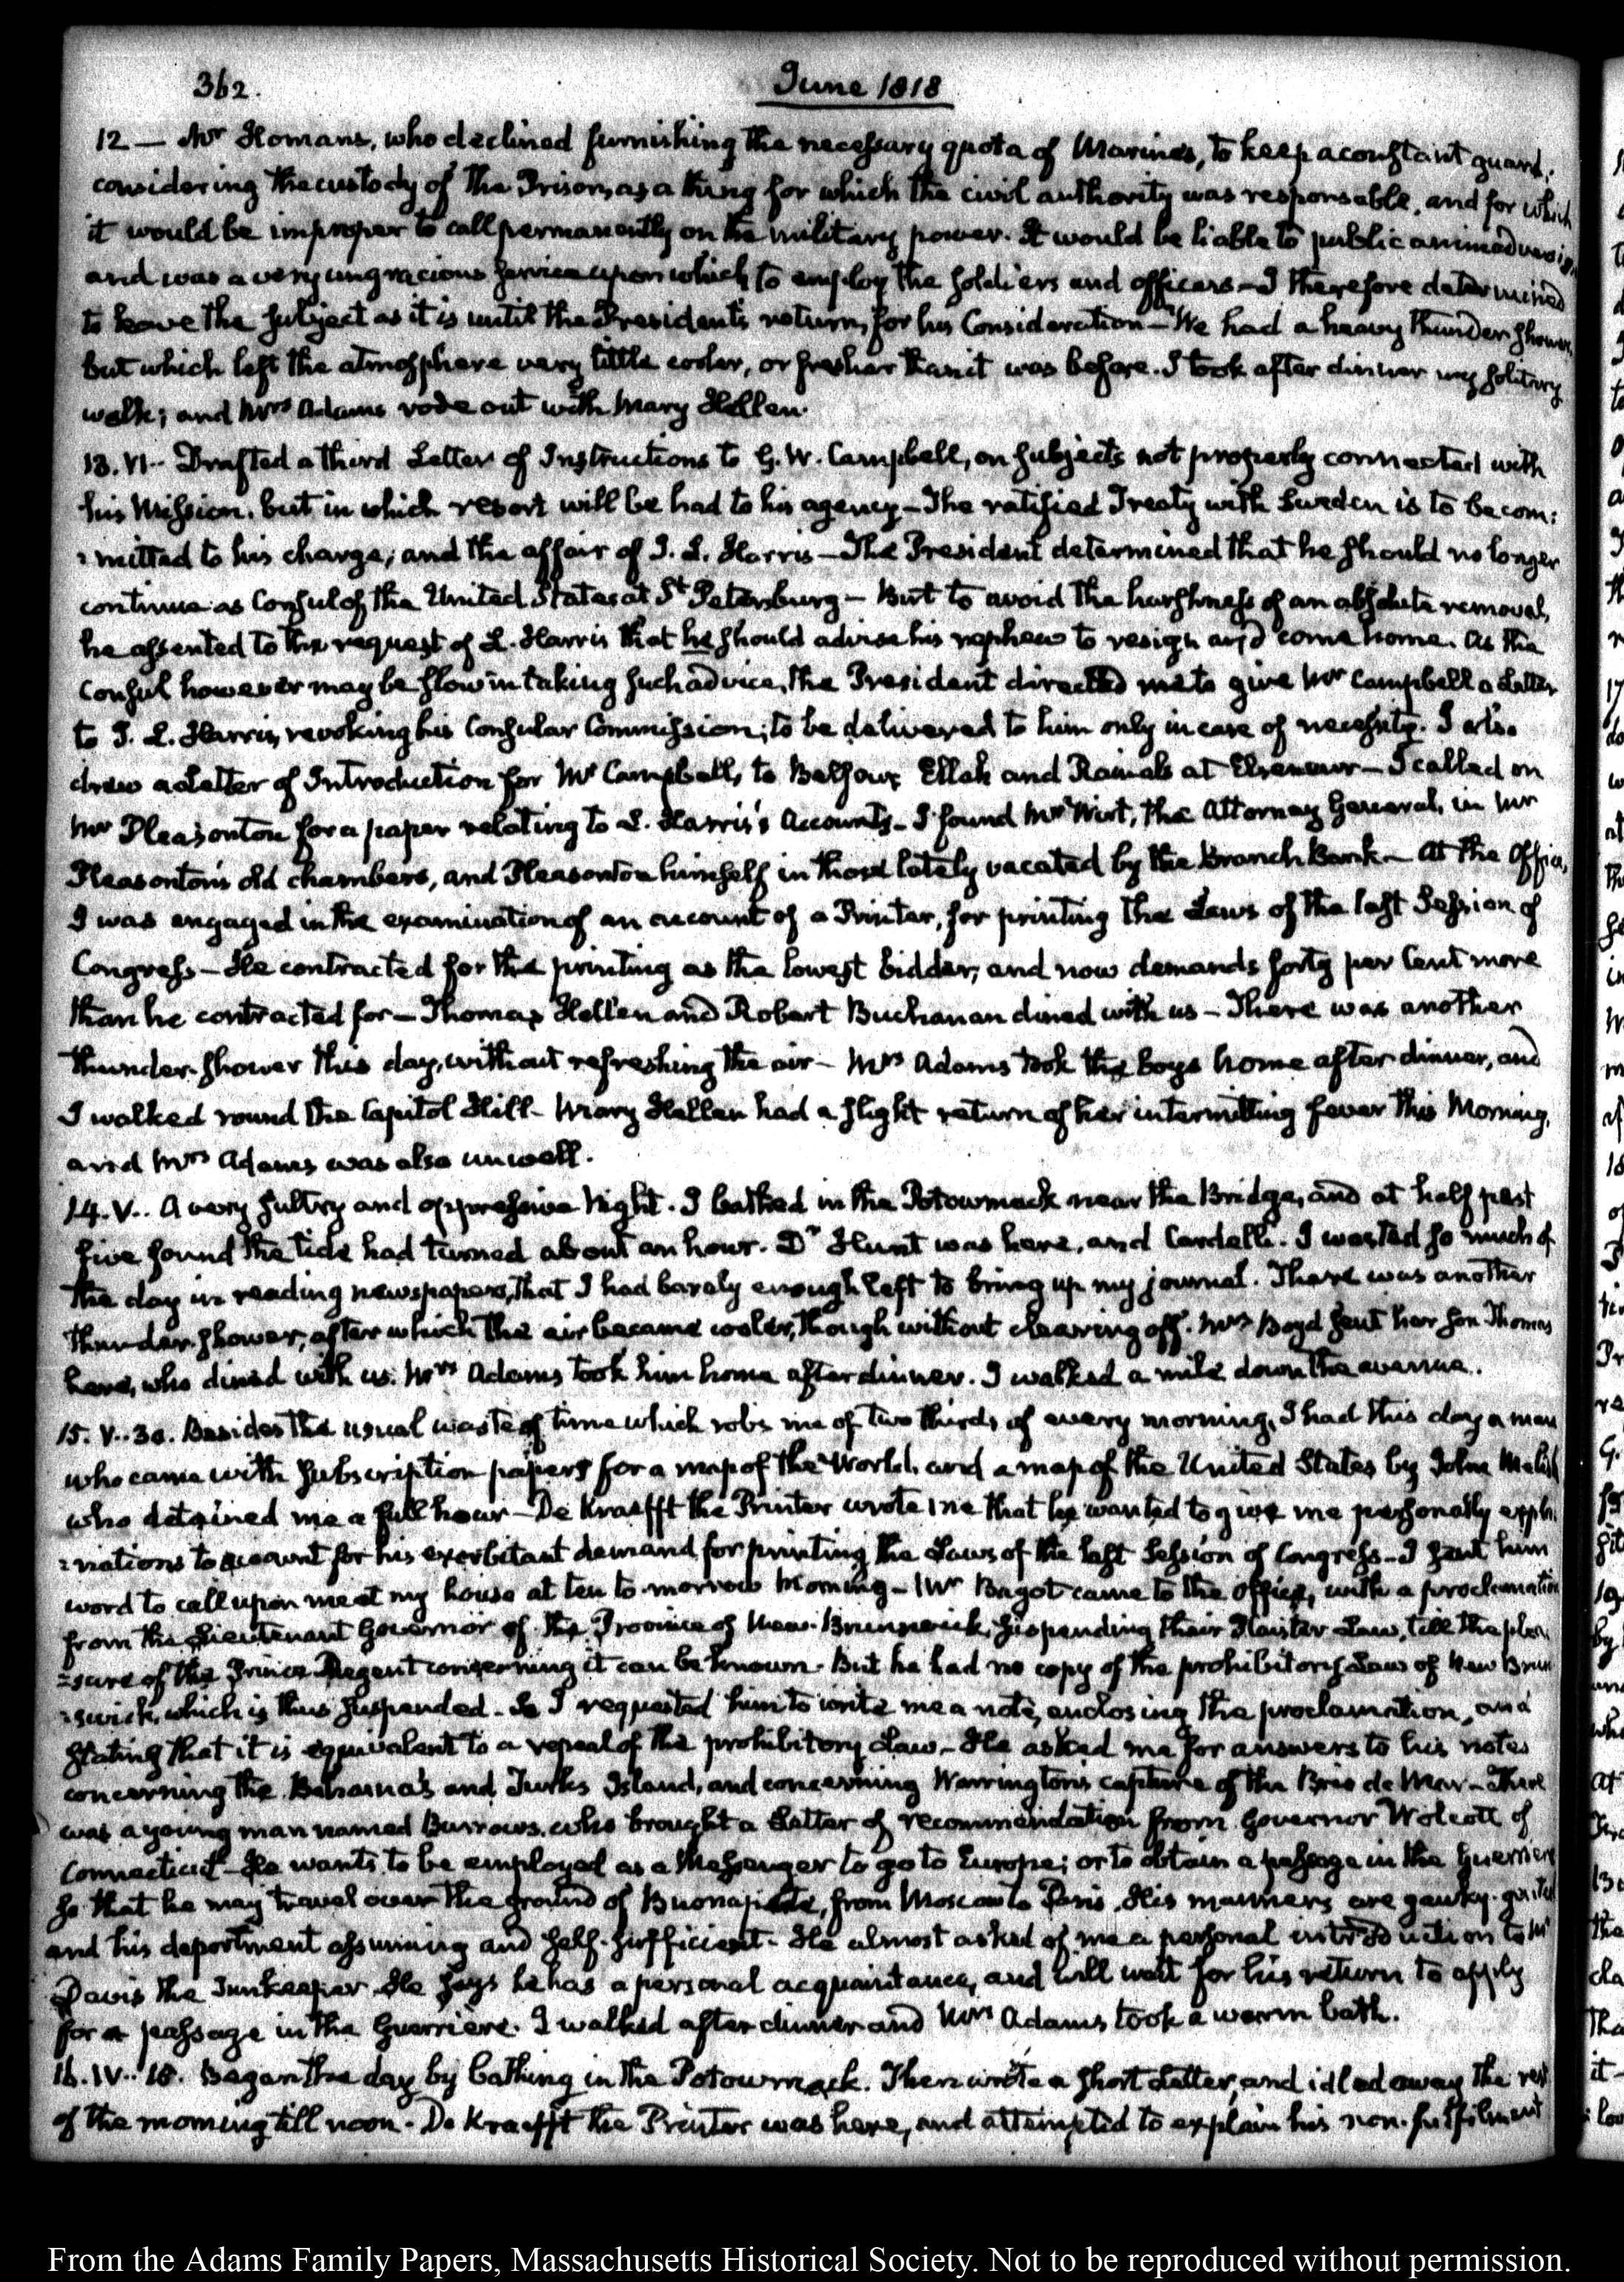 362.
June 1818
12 — Mr Homans, who declined furnishing the necessary quota of Marines, to keep a constant guard,
considering the custody of the Prison, as a thing for which the civil authority was responsable, and for which
it would be improper to call permanently on the military power. It would be liable to public animadversion
and was a very ungracious service upon which to employ the soldiers and officers — I therefore determined
to leave the subject as it is until the President's return, for his Consideration — We had a heavy thunder shower,
but which left the atmosphere very little cooler, or fresher than it was before. I took after dinner my solitary
walk; and Mrs Adams rode out with Mary Hellen.
13. VI.. Drafted a third Letter of Instructions to G. W. Campbell, on subjects not properly connected with
his Mission, but in which resort will be had to his agency — The ratified Treaty with Sweden is to be com:
:mitted to his charge; and the affair of J. L. Harris — The President determined that he should no longer
continue as Consul of the United States at St Petersburg — But to avoid the harshness of an absolute removal,
he assented to the request of L. Harris that he should advise his nephew to resign and come home. As the
Consul however may be slow in taking such advice, the President directed me to give Mr Campbell a Letter
to J. L. Harris, revoking his Consular Commission; to be delivered to him only in case of necessity. I also
drew a Letter of Introduction for Mr Campbell, to Balfour Ellah and Rainals at Elseneur — I called on
Mr Pleasonton for a paper relating to L. Harris's Accounts — I found Mr Wirt, the Attorney General, in Mr
Pleasonton's old chambers, and Pleasonton himself in those lately vacated by the Branch Bank — At the Office,
I was engaged in the examination of an account of a Printer, for printing the Laws of the last Session of
Congress — He contracted for the printing as the lowest bidder, and now demands forty per Cent more
than he contracted for — Thomas Hellen and Robert Buchanan dined with us — There was another
thunder-shower this day, without refreshing the air — Mrs Adams took the boys home after dinner, and
I walked round the Capitol Hill — Mary Hellen had a slight return of her intermitting fever this Morning,
and Mrs Adams was also unwell.
14. V.. A very sultry and oppressive Night. I bathed in the Potowmack near the Bridge, and at half past
five found the tide had turned about an hour. Dr Hunt was here, and Cardelli. I wasted so much of
the day in reading newspapers, that I had barely enough left to bring up my journal. There was another
thunder-shower, after which the air became cooler, though without clearing off. Mrs Boyd sent her son Thomas
here, who dined with us. Mrs Adams took him home after dinner. I walked a mile down the avenue.
15. V..30. Besides the usual waste of time which robs me of two thirds of every morning, I had this day a man
who came with subscription papers for a map of the World, and a map of the United States by John Melish
who detained me a full hour — De Krafft the Printer wrote me that he wanted to give me personally expla:
:nations to account for his exorbitant demand for printing the Laws of the last Session of Congress — I sent him
word to call upon me at my house at ten to-morrow Morning — Mr Bagot came to the office, with a proclamation
from the Lieutenant Governor of the Province of New-Brunswick, suspending their Plaister Law, till the plea:
:sure of the Prince Regent concerning it can be known. But he had no copy of the prohibitory Law of New Brun
:swick, which is thus suspended. So I requested him to write me a note, enclosing the proclamation, and
stating that it is equivalent to a repeal of the prohibitory Law — He asked me for answers to his notes
concerning the Bahama's and Turks Island, and concerning Warrington's capture of the Brio de Mar — There
was a young man named Burrows, who brought a Letter of recommendation from Governor Wolcott of
Connecticut — He wants to be employed as a Messenger to go to Europe; or to obtain a passage in the Guerriere
so that he may travel over the ground of Buonaparte, from Moscow to Paris. His manners are
and his deportment assuming and self-sufficient. He almost asked of me a personal introduction to Mr
Davis the Innkeeper He says he has a personal acquaintance, and will wait for his return to apply
for a passage in the Guerriere. I walked after dinner and Mrs Adams took a warm bath.
16. IV..15. Began the day by bathing in the Potowmack. Then wrote a short Letter, and idled away the rest
of the morning till noon. De Krafft the Printer was here, and attempted to explain his non-fulfilment
From the Adams Family Papers, Massachusetts Historical Society. Not to be reproduced without permission.